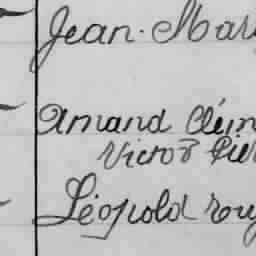 Jean-Mar
Amand Clém
Victor Pier
Léopold rou